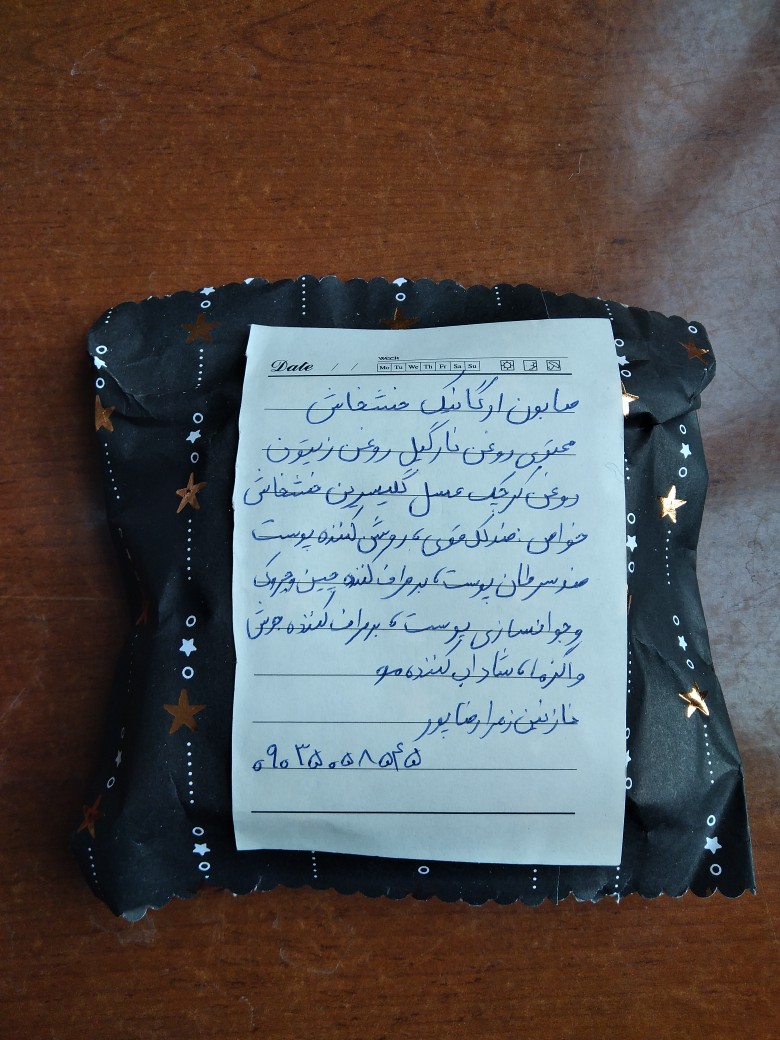 Week
Date / / Mo Tu We Th Fr Sa Su
صابون ارگانیک خشخاش
محتوی روغن نارگیل روغن زیتون
روغن کرچک عسل گلیسیرین خشخاش
خواص: ضدلک قوی، روشن کننده پوست
ضد سرطان پوست، برطرف کننده چین و چروک
و جوانسازی پوست، برطرف کننده جوش
و اگزما، شاداب کننده مو
نازنین زهرا رضاپور
۰۹۰۳۵۰۵۸۵۶۵